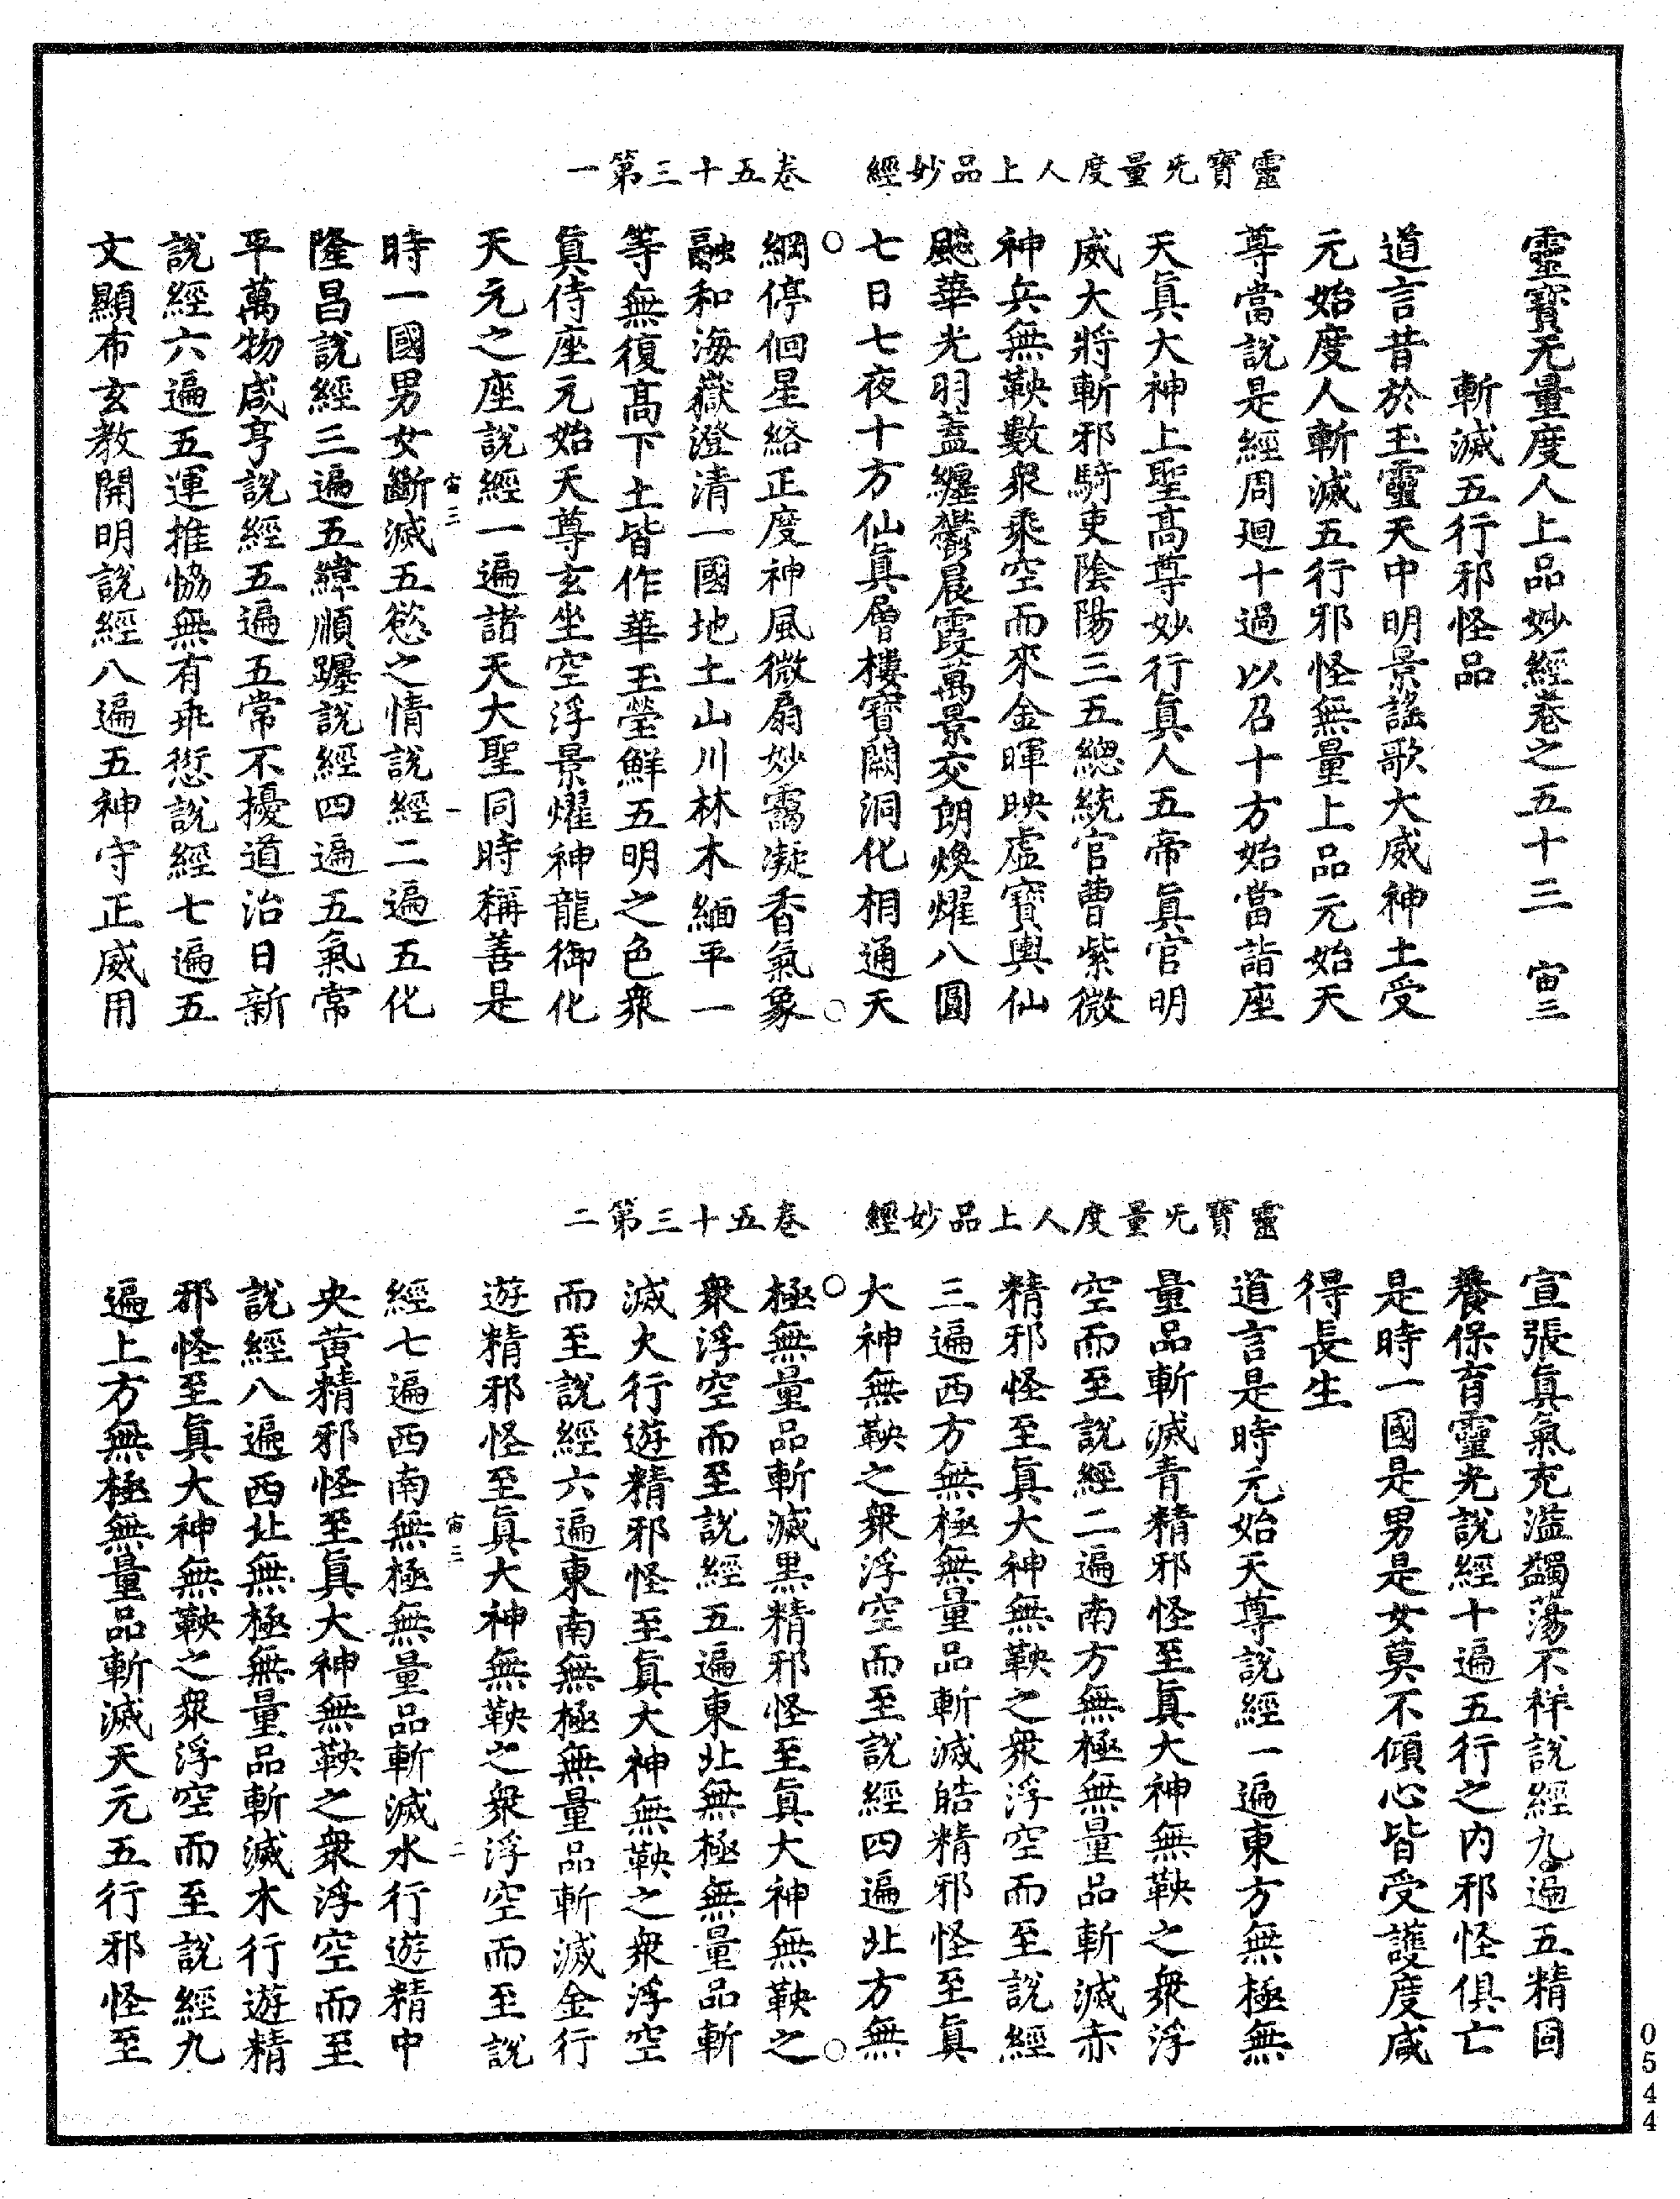 靈寶无量度人上品妙經　卷五十三第一
靈寶无量度人上品妙經卷之五十三　宙三
斬滅五行邪怪品
道言昔於玉靈天中明景謠歌大威神土受
元始度人斬滅五行邪怪無量上品元始天
尊當說是經周廻十過以召十方始當詣座
天真大神上聖高尊妙行真人五帝真官明
威大將斬邪騎吏陰陽三五總統官曹紫微
神兵無鞅數衆乘空而來金暉映虛寶輿仙
飈華光羽蓋纏欝晨霞萬景交朗煥燿八圓
七日七夜十方仙真層樓寶闕洞化相通天
綱停徊星絡正度神風微扇妙靄凝香氣象
融和海嶽澄清一國地土山川林木緬平一
等無復高下土皆作華玉瑩鮮五明之色衆
真侍座元始天尊玄坐空浮景燿神龍御化
天元之座說經一遍諸天大聖同時稱善是
宙三　一
時一國男女斷滅五慾之情說經二遍五化
隆昌說經三遍五緯順躔說經四遍五氣常
平萬物咸亨說經五遍五常不擾道治日新
說經六遍五運推恊無有乖愆說經七遍五
文顯布玄教開明說經八遍五神守正威用
靈寶无量度人上品妙經　卷五十三第二
宣張真氣充溢蠲蕩不祥說經九遍五精固
養保育靈光說經十遍五行之内邪怪俱亡
是時一國是男是女莫不傾心皆受護度咸
得長生
道言是時元始天尊說經一遍東方無極無
量品斬滅青精邪怪至真大神無鞅之衆浮
空而至說經二遍南方無極無量品斬滅赤
精邪怪至真大神無鞅之衆浮空而至說經
三遍西方無極無量品斬滅皓精邪怪至真
大神無鞅之衆浮空而至說經四遍北方無
極無量品斬滅黑精邪怪至真大神無鞅之
衆浮空而至說經五遍東北無極無量品斬
滅火行遊精邪怪至真大神無鞅之衆浮空
而至說經六遍東南無極無量品斬滅金行
遊精邪怪至真大神無鞅之衆浮空而至說
宙三　二
經七遍西南無極無量品斬滅水行遊精中
央黃精邪怪至真大神無鞅之衆浮空而至
說經八遍西北無極無量品斬滅木行遊精
邪怪至真大神無鞅之衆浮空而至說經九
遍上方無極無量品斬滅天元五行邪怪至
0544